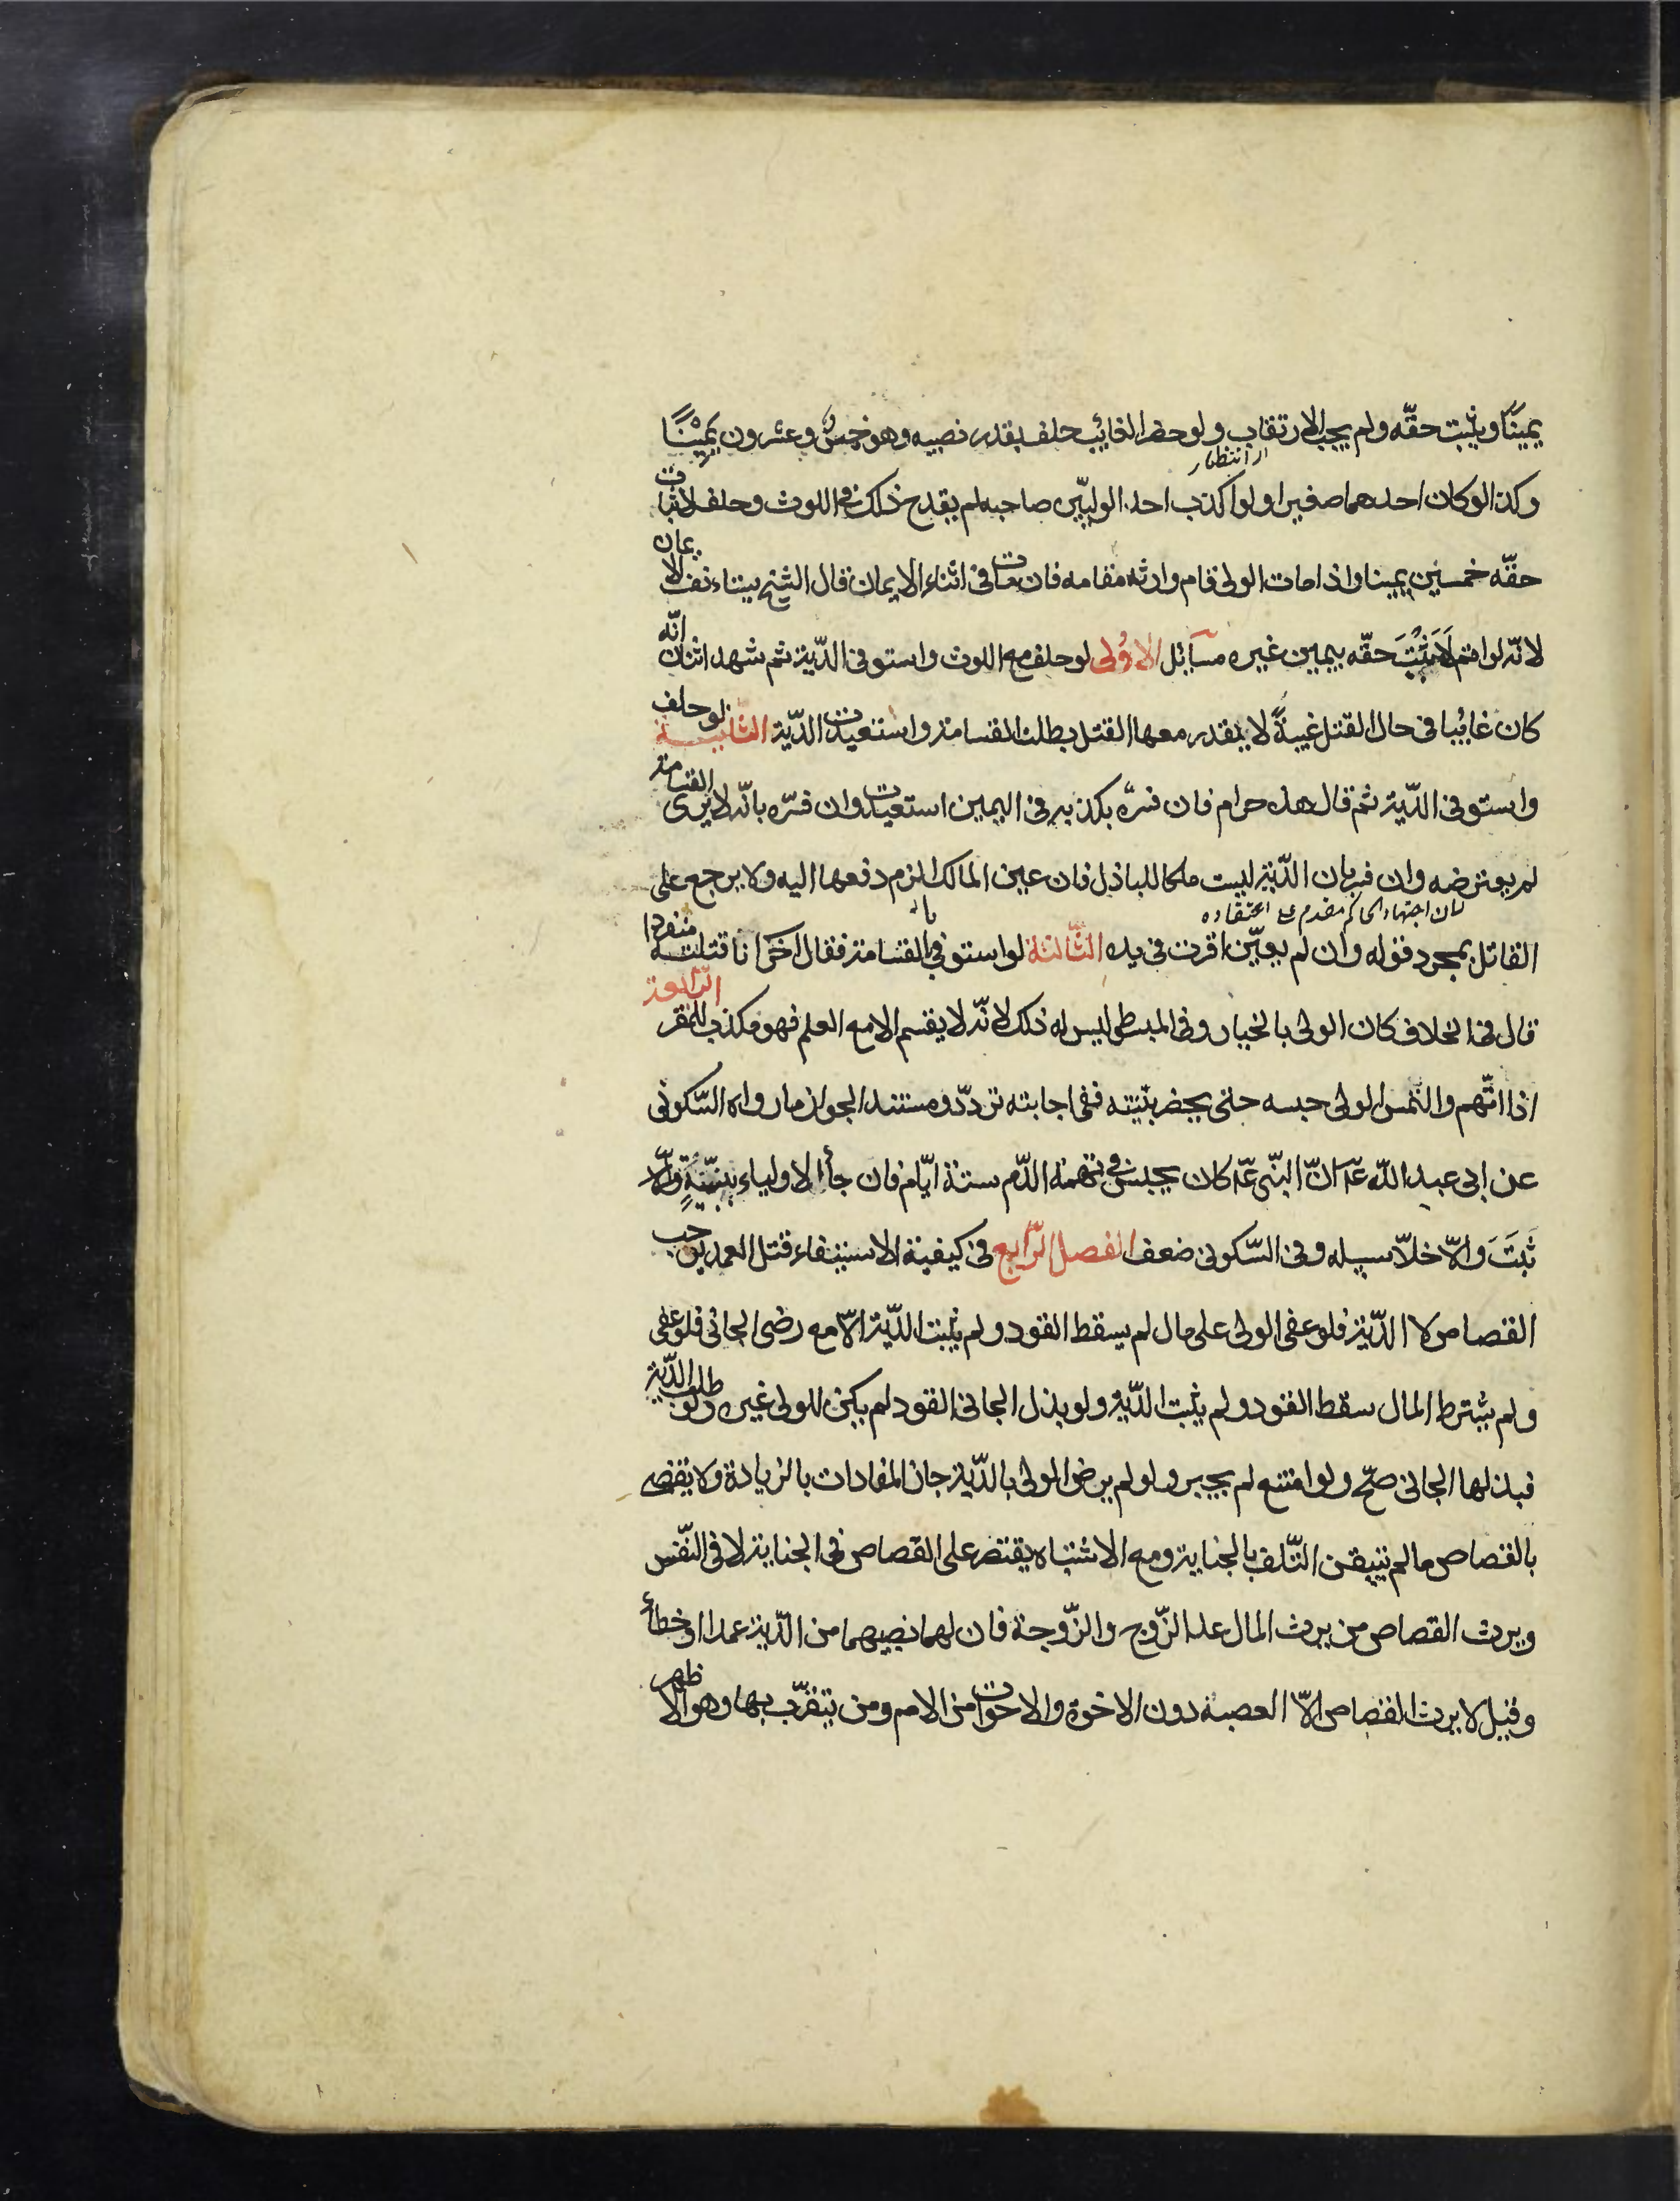 يمينًا ويثبت حقّه ولم يجب الارتقاب ولو حضر الغائب حلف بقدر نصيبه وهو خمسٌ وعشرون يمينًا
انتظار
وكذا لو كان احدهما صغيرا ولو اكذب احد الوليّين صاحبه لم يقدح ذلك في اللوث وحلف لاثبات
حقّه خمسين يمينا واذا مات الولى قام وارثه مقامه فان مات فى اثناء الايمان قال الشيخ يستانف الايمان
لانّه لو اتم لاَثبتَ حقّه بيمين غيره مسآئل الاوُلى لو حلف مع اللوث واستوفى الدّية ثم شهد اثنان انّه
كان غائبا فى حال القتل غيبةً لا يقدر معها القتل بطلت القسامة واستعيدت الدّية الثانية لو حلف
واستوفى الدّية ثم قال هذه حرام فان فسّره بكذبه فى اليمين استعيدت وان فسّره بانّه لا يرى القسامة
لم يعترضه وان فسر بان الدّية ليست ملكا للباذل فان عين المالك الزم دفعها اليه ولا يرجع على
لان اجتهاد الحاكم مقدم على اعتقاده
القاتل بمجرد قوله وان لم يعيّن اقرت فى يده الثّالثة لو استوفى بالقسامة فقال آخَر انا قتلته منفردا
قال فى الخلاف كان الولى بالخيار وفى المبسط ليس له ذلك لانّه لا يقسم الا مع العلم فهو مكذب للمقر الرّابعة
اذا اتّهم والتمس الولى حبسه حتى يحضر بيّنته ففى اجابته تردّد ومستند الجواز ما رواه السّكونى
عن ابى عبد اللّه عَ انّ النّبى عَ كان يحبس فى تهمة الدّم ستة ايّام فان جآء الاولياء ببيّنةٍ والّا
ثبتَ والّا خلاّ سبيله وفى السّكونى ضعف الفصل الرّابع فى كيفية الاستيفاء قتل العمد يوجب
القصاص لا الدّية فلو عفى الولى على مال لم يسقط القود ولم يثبت الدّية الّا مع رضى الجانى فلو عفى
ولم يشترط المال سقط القود ولم يثبت الدّية ولو بذل الجانى القود لم يكن للولى غيره ولو طلب الدّية
فبذلها الجانى صحّ ولو امتنع لم يجبر ولو لم يرض الولى بالدّية جاز المفادات بالزيادة ولا يقضى
بالقصاص ما لم يتيقن التّلف بالجناية ومع الاشتباه يقتصر على القصاص فى الجناية لا فى النّفس
ويرث القصاص من يرث المال عدا الزّوج والزّوجة فان لهما نصيبهما من الدّية عمدا او خطأ
وقيل لا يرث القصاص الّا العصبة دون الاخوة والاخوات من الام ومن يتقرّب بها وهو الاظهر